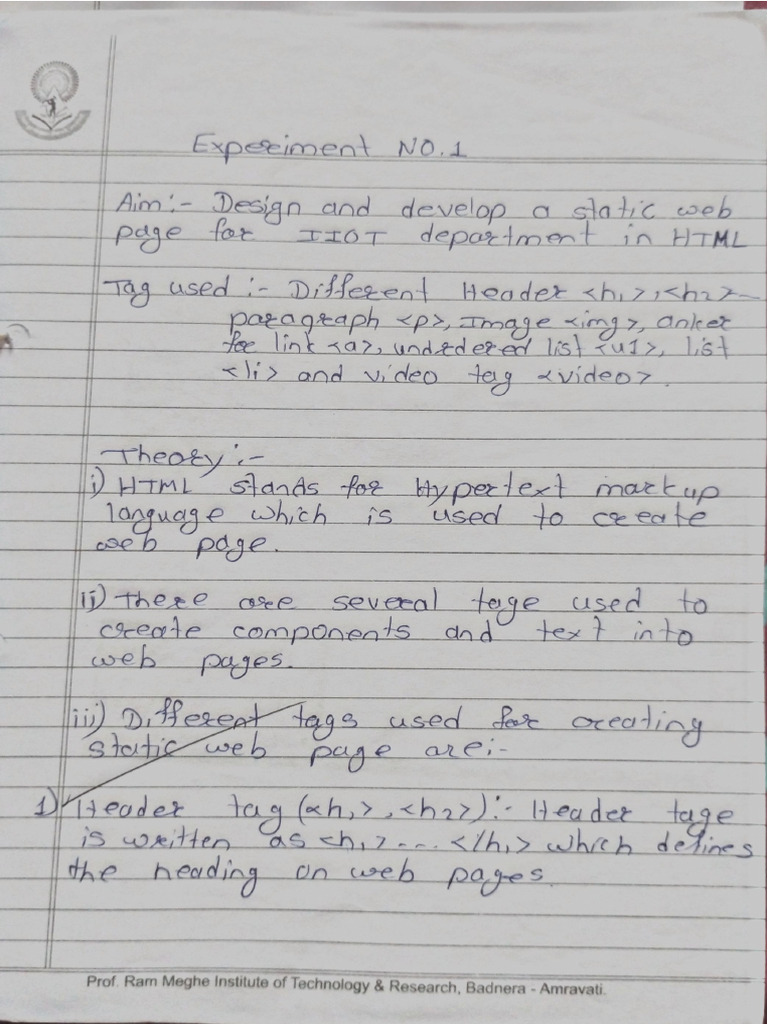 Experiment NO.1
Aim:- Design and develop a static web
page for IIOT department in HTML
Tag used :- Different Header <h1>,<h2>-
paragraph <p>, Image <img>, anker
for link <a>, undrdered list <u1>, list
<li> and video tag <video>.
Theory:-
i) HTML stands for Hypertext markup
language which is used to create
web page.
ii) There are several tage used to
create components and text into
web pages.
iii) Different tags used for creating
static web page are:-
1) Header tag (<h1>, <h2>):- Header tage
is written as <h1>.... </h1> which defines
the heading on web pages.
Prof. Ram Meghe Institute of Technology & Research, Badnera - Amravati.